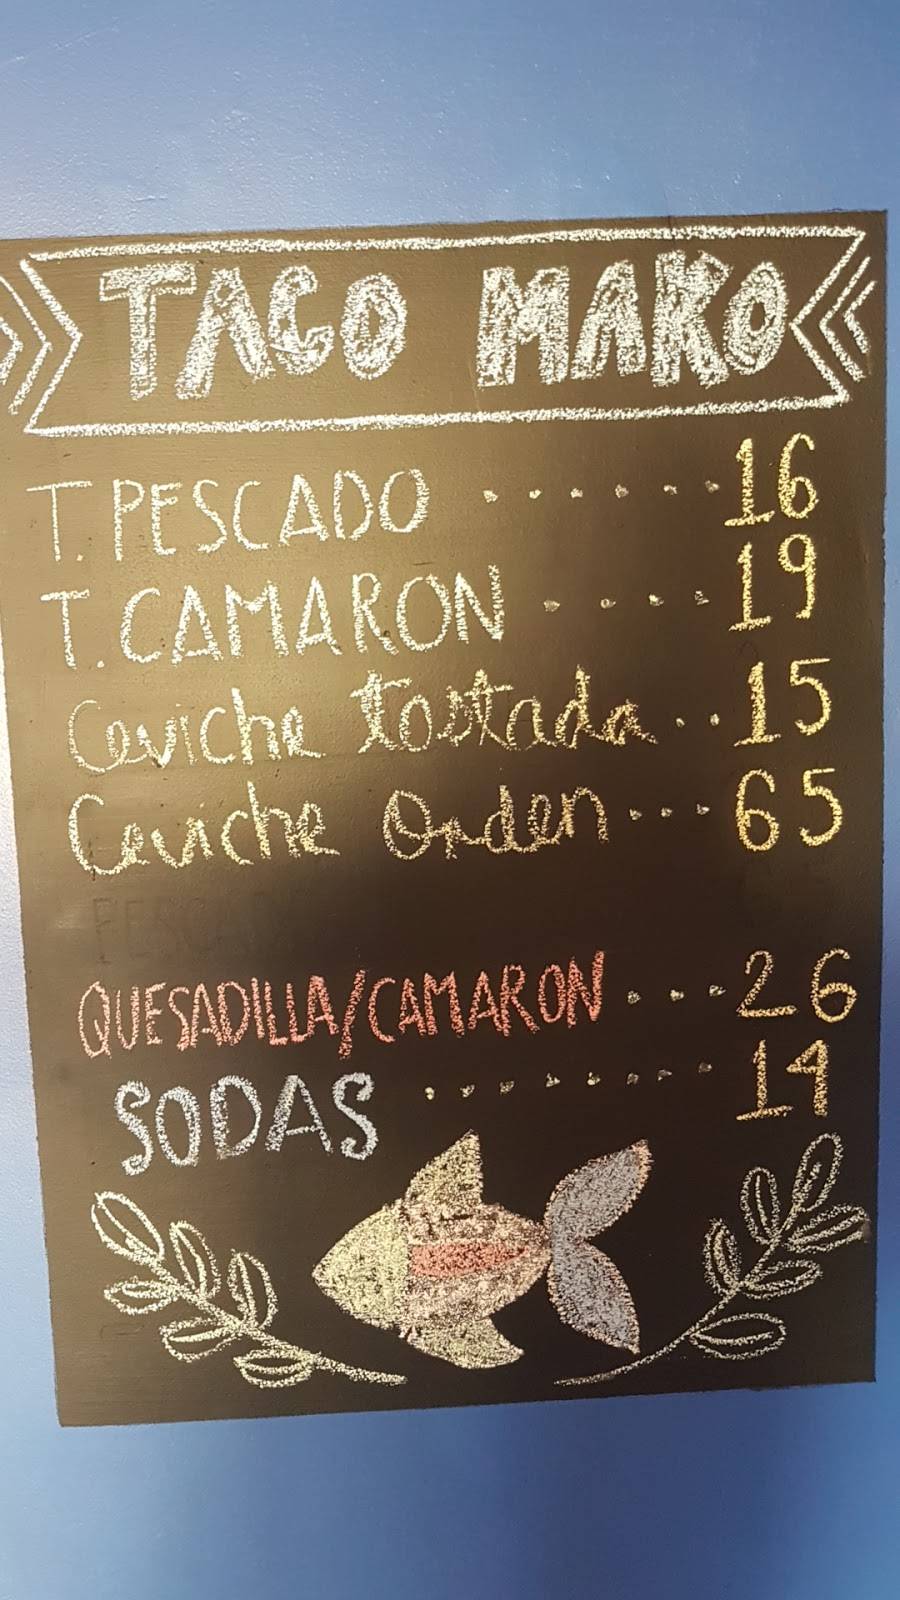 TACO MAKO
T. PESCADO ...... 16
T. CAMARON .... 19
Ceviche tostada .. 15
Ceviche Orden ... 65
PESCADO
QUESADILLA/CAMARON ... 26
SODAS ........ 14